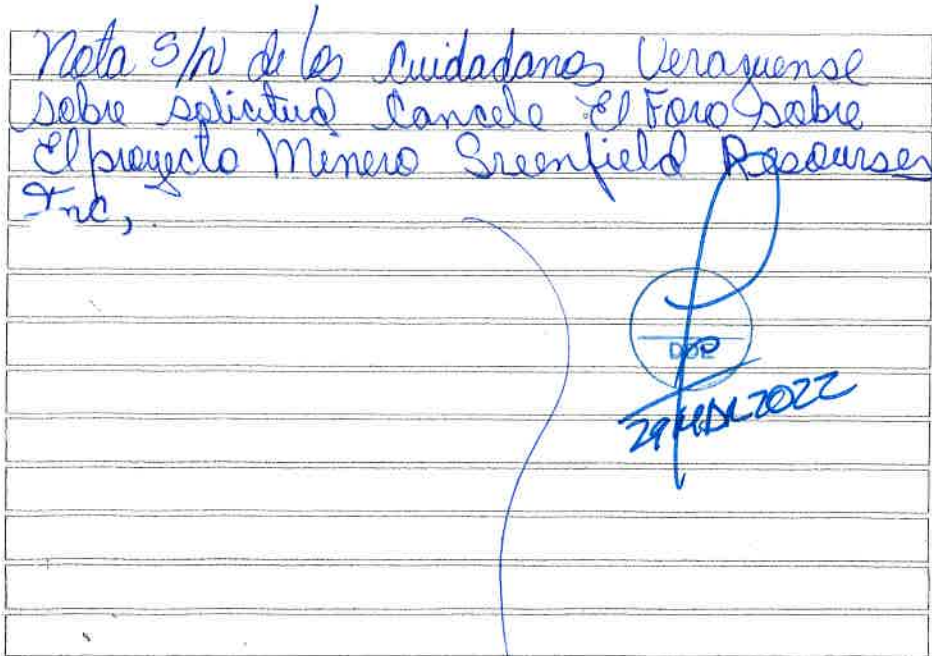 Nota S/N de los Cuidadanos Veraguense
sobre solicitud Cancele El Foro sobre
El proyecto Minero Greenfield Resourses
Inc,
29 MAR 2022